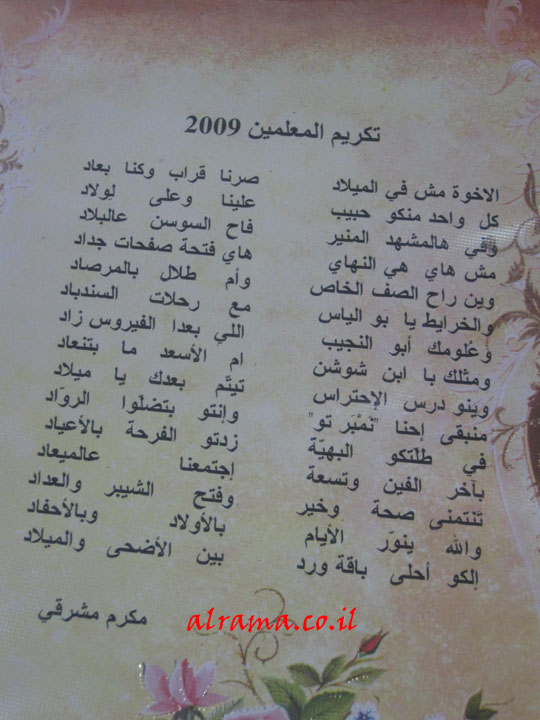 تكريم المعلمين 2009
الاخوة مش في الميلاد صرنا قراب وكنا بعاد
كل واحد منكو حبيب علينا وعلى لولاد
وفي هالمشهد المنير فاح السوسن عالبلاد
مش هاي هي النهاي هاي فتحة صفحات جداد
وين راح الصف الخاص وأم طلال بالمرصاد
والخرايط يا بو الياس مع رحلات السندباد
وعُلومك أبو النجيب اللي بعدا الفيروس زاد
ومثلك با ابن شوشن ام الأسعد ما بتنعاد
وينو درس الإحتراس تيتّم بعدك يا ميلاد
منبقى إحنا "نَمْبَر تو" وإنتو بتضلّوا الروّاد
في طلّتكو البهيّة زدتو الفرحة بالأعياد
بآخر الفين وتسعة إجتمعنا عالميعاد
نتنمنى صحة وخير وفتح الشيبر والعداد
والله ينوّر الأيام بالأولاد وبالأحفاد
إلكو أحلى باقة ورد بين الأضحى والميلاد
مكرم مشرقي
alrama.co.il